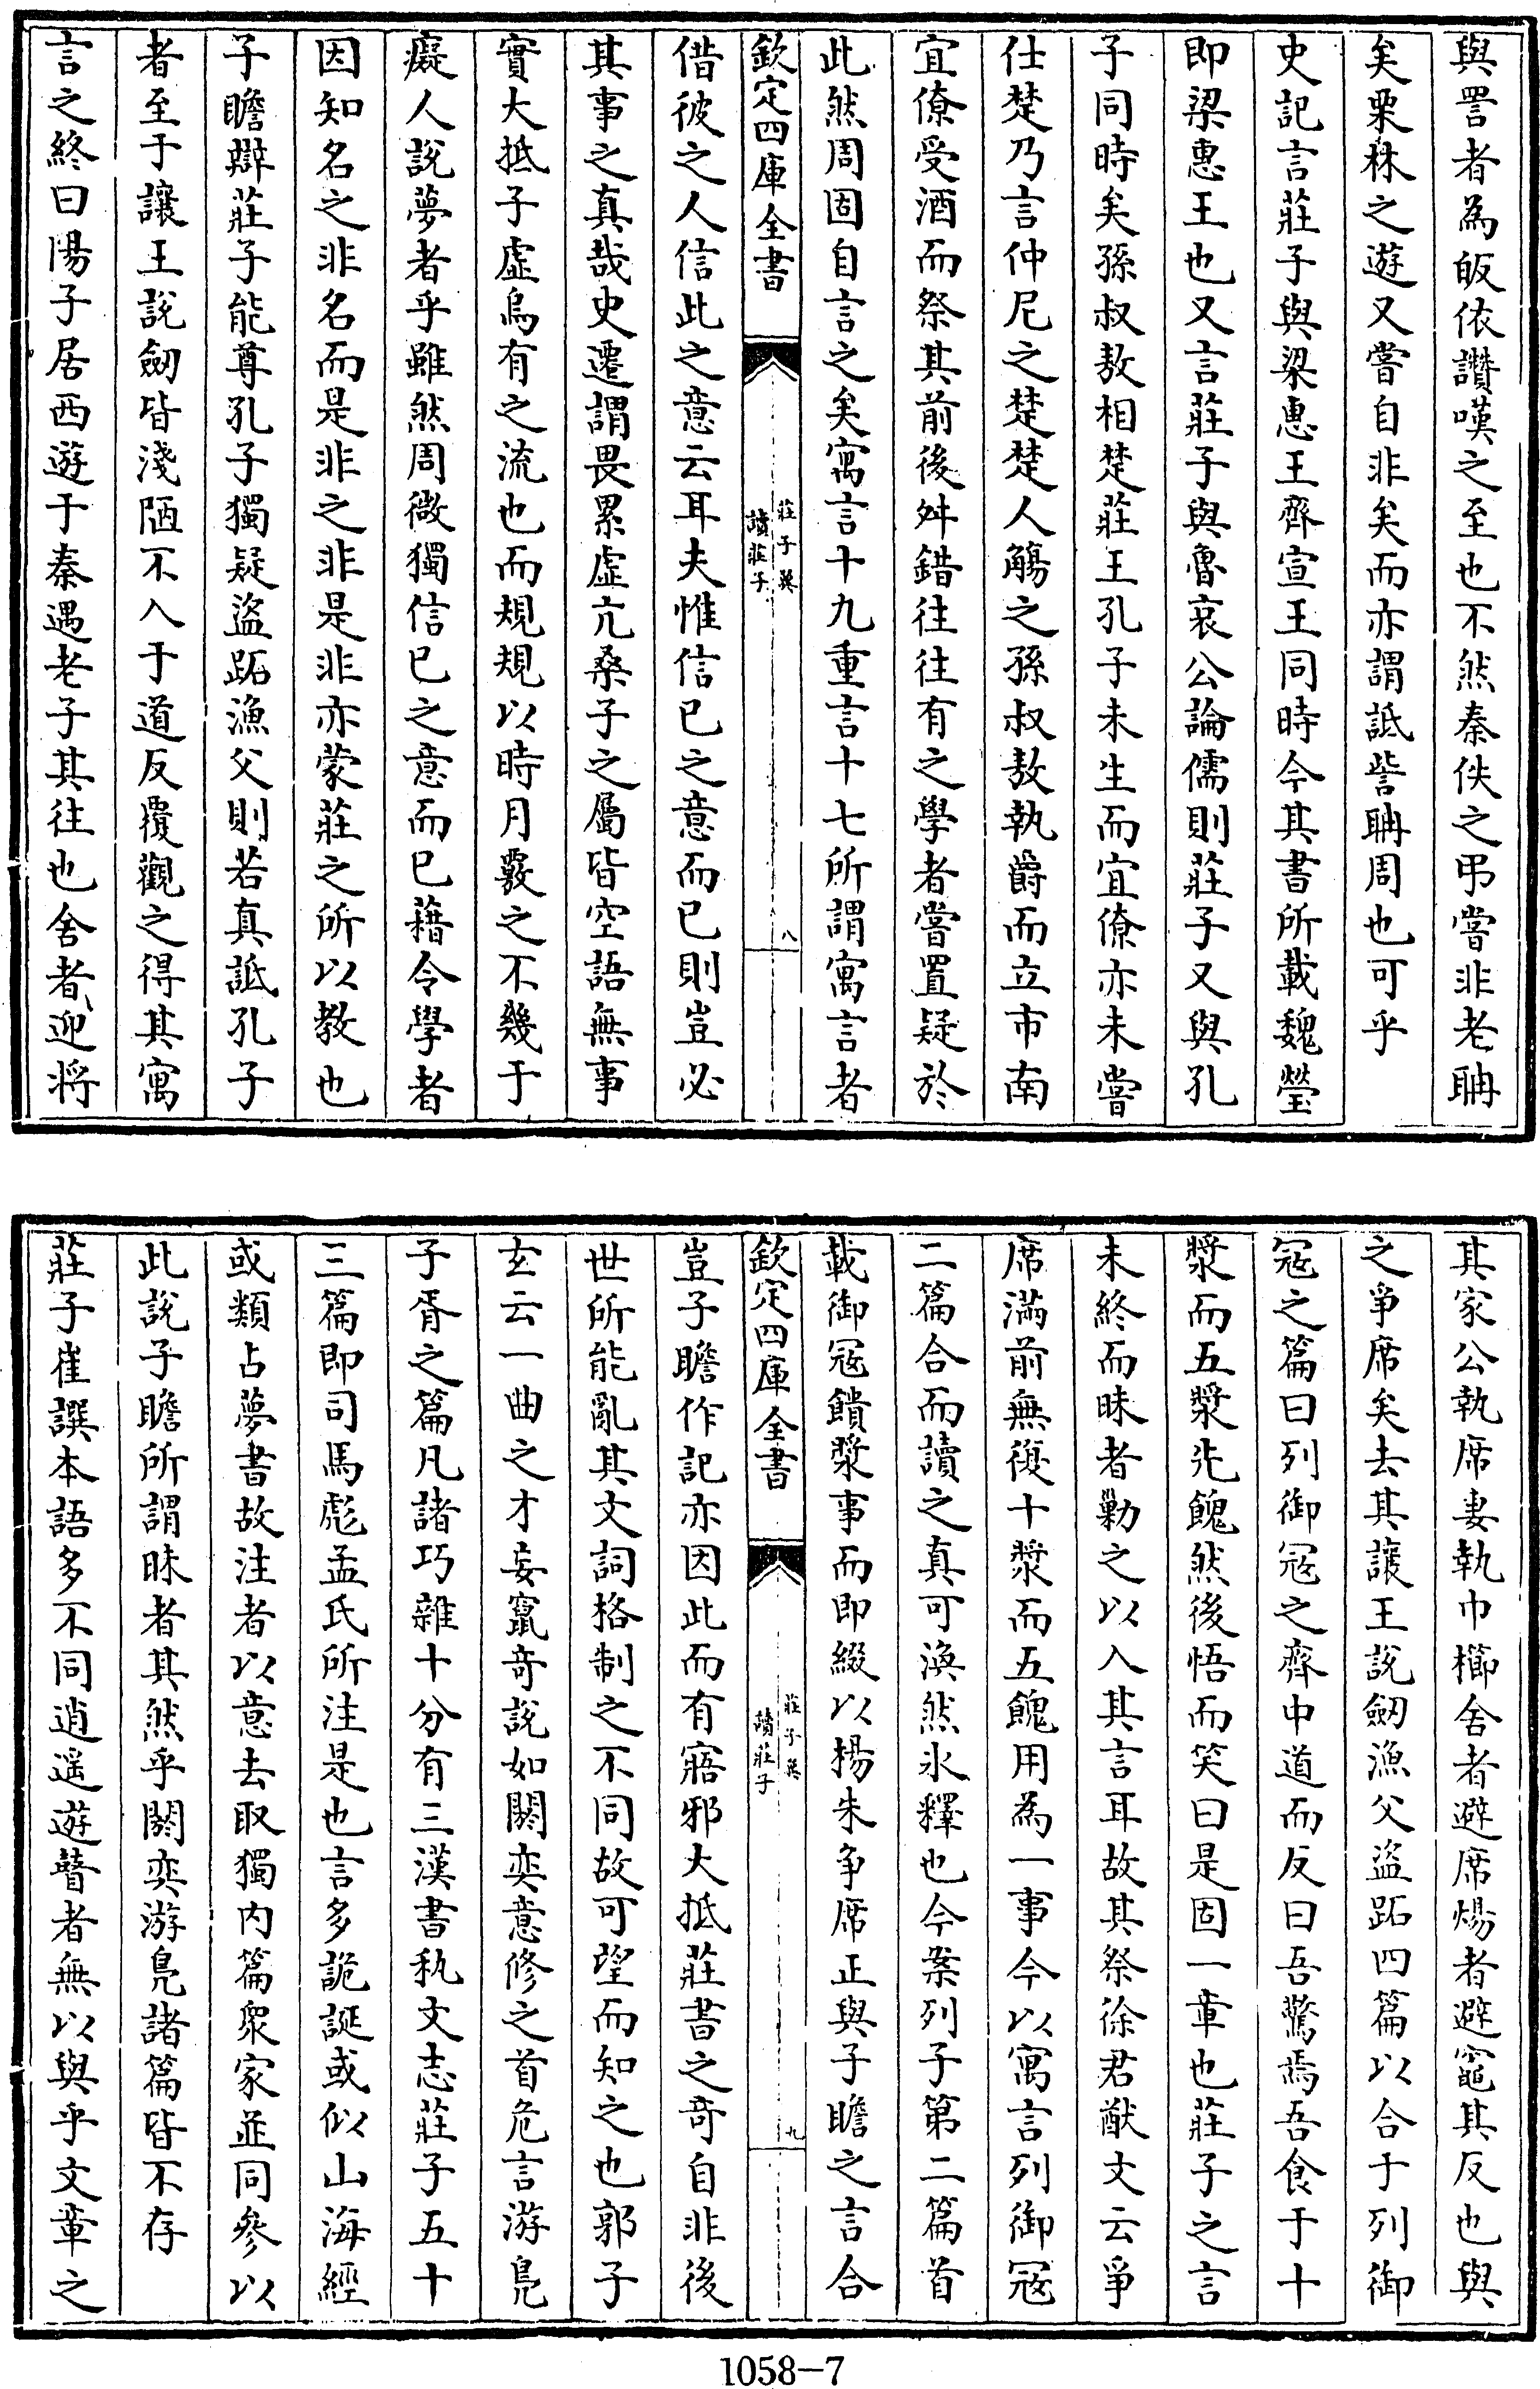 與詈者為皈依讚嘆之至也不然秦佚之弔嘗非老聃
矣栗林之遊又嘗自非矣而亦謂詆訾聃周也可乎
史記言莊子與梁惠王齊宣王同時今其書所載魏瑩
即梁惠王也又言莊子與魯哀公論儒則莊子又與孔
子同時矣孫叔敖相楚莊王孔子未生而宜僚亦未嘗
仕楚乃言仲尼之楚楚人觴之孫叔敖執爵而立市南
宜僚受酒而祭其前後舛錯往往有之學者嘗置疑於
此然周固自言之矣寓言十九重言十七所謂寓言者
欽定四庫全書
莊子翼
讀莊子
八
借彼之人信此之意云耳夫惟信已之意而已則豈必
其事之真哉史遷謂畏累虛亢桑子之屬皆空語無事
實大抵子虛烏有之流也而規規以時月覈之不幾于
癡人說夢者乎雖然周微獨信已之意而已藉令學者
因知名之非名而是非之非是非亦蒙莊之所以教也
子瞻辯莊子能尊孔子獨疑盜跖漁父則若真詆孔子
者至于讓王說劒皆淺陋不入于道反覆觀之得其寓
言之終曰陽子居西遊于秦遇老子其往也舍者迎將
其家公執席妻執巾櫛舍者避席煬者避竈其反也與
之爭席矣去其讓王說劒漁父盜跖四篇以合于列御
冦之篇曰列御冦之齊中道而反曰吾驚焉吾食于十
漿而五漿先餽然後悟而笑曰是固一章也莊子之言
未終而昧者勦之以入其言耳故其祭徐君猷文云爭
席滿前無復十漿而五餽用為一事今以寓言列御冦
二篇合而讀之真可渙然氷釋也今案列子第二篇首
載御冦饋漿事而即綴以楊朱争席正與子瞻之言合
欽定四庫全書
莊子翼
讀莊子
九
豈子瞻作記亦因此而有寤邪大抵莊書之奇自非後
世所能亂其文詞格制之不同故可望而知之也郭子
玄云一曲之才妄竄奇說如閼奕意修之首危言游鳧
子胥之篇凡諸巧雜十分有三漢書秇文志莊子五十
三篇即司馬彪孟氏所注是也言多詭誕或似山海經
或類占夢書故注者以意去取獨内篇衆家並同參以
此說子瞻所謂昧者其然乎閼奕游鳧諸篇皆不存
莊子崔譔本語多不同逍遥遊瞽者無以與乎文章之
1058-7